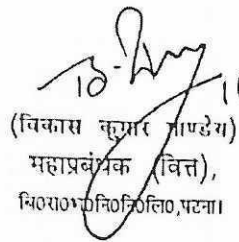 (विकास कुमार पाण्डेय)
महाप्रबंधक (वित्त),
बि०रा०भ०नि०नि०लि०, पटना।